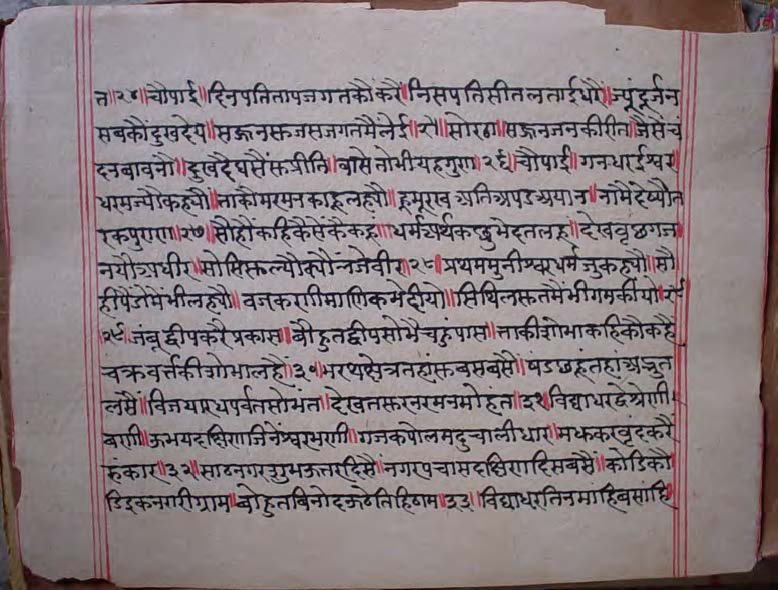 त॥२४॥चौपाई॥दिनपतितापजगतकौंकरैं॥निसपतिसीतलताईधरैं॥ज्यूंदूर्जन
सबकौंदुखदेय॥सज्जनसुजसजगतमैलेई॥२५॥सोरठा॥सज्जनजनकीरीत॥जैसेंचं
दनबावनौ॥दुखदैपसैंसुप्रीति॥वासेंतोभीयहगुण॥२६॥चौपाई॥गनधरईश्वर
धरमज्यौकह्यौ॥ताकौमरमनकाहूलह्यौ॥हूमूरखअतिअपडअयान॥नामैदेष्यौत
रकपुराण॥२७॥सौहौंकहिकैसेंकैकहू॥धर्मअर्थकछुभेदनलहू॥देखवृछगज
नयौअधीर॥सोसिसुल्यौक्यौंनजेवीर॥२८॥प्रथममुनीश्वरधर्मजुकह्यौ॥सौ
हीपैंडोमैंभीलह्यौ॥वजकरणीमाणिकभेदीयो॥सिथिलसुतमैंभीगमकीयो॥२९
२९॥जंबूद्वीपकरैप्रकास॥बौहुतद्वीपसोभैचहुंपास॥ताकीशोभाकहिकौकहैं
चक्रवर्त्तकीशोभालहौं॥३०॥भरथक्षेत्रतहांसुबसबसैं॥षंडछहूंतहांअद्भुत
लसैं॥विजयारधपर्वतसोभंत॥देखतसुरनरमनमोहत॥३१॥विद्याधरद्वेश्रेणी
बरणी॥ऊभयदक्षिणजिनेंश्वरभरणी॥गजकपोलमदुचालीधार॥मधुकरवृंदकरैं
हुंकार॥३२॥साठनगरशुभऊतरदिसैं॥नगरपचासदक्षिणदिसबसैं॥कोडिकौ
डिइकनगरीग्राम॥बोहुतबिनोदऊठेतिहिठाम॥३३॥विद्याधरतिनमांहिबसांहि